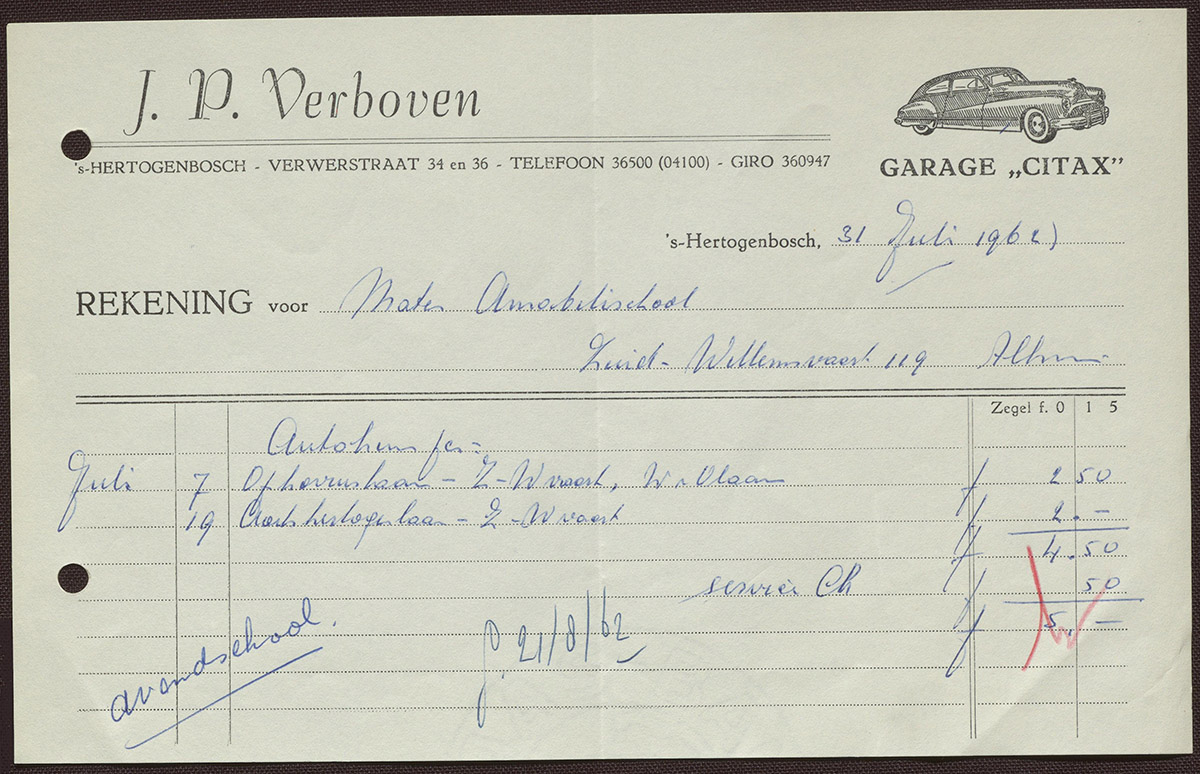 J. P. Verboven
's-HERTOGENBOSCH - VERWERSTRAAT 34 en 36 - TELEFOON 36500 (04100) - GIRO 360947
GARAGE „CITAX”
's-Hertogenbosch, 31 Juli 1962
REKENING voor Mater Amabilischool
Zuid-Willemsvaart 119 Alhier
Zegel f. 0 15
Juli 7 Z-Wvaart, f 2 50
19 Z-Wvaart 2.-
f 4.50
service Ch f 50
f 5.-
21/8/62
avondschool.